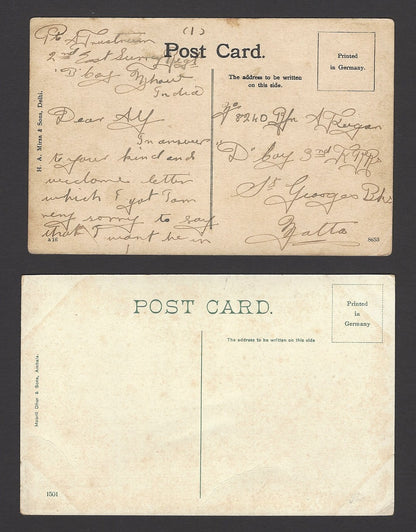 (1)
Post Card.
Printed
in Germany.
2nd East Surrey Regt
"D" Coy
India
Dear Alf
In answer
to your kind and
welcome letter
which I got I am
very sorry to say
that I wont be in
The address to be written
on this side.
No
8240 A Regan
"D" Coy 3rd
St Georges Bks
Malta
H. A. Mirza & Sons, Delhi.
a 16
8653
POST CARD.
Printed
in
Germany
The address to be written on this side
& Sons, Ambala.
1501